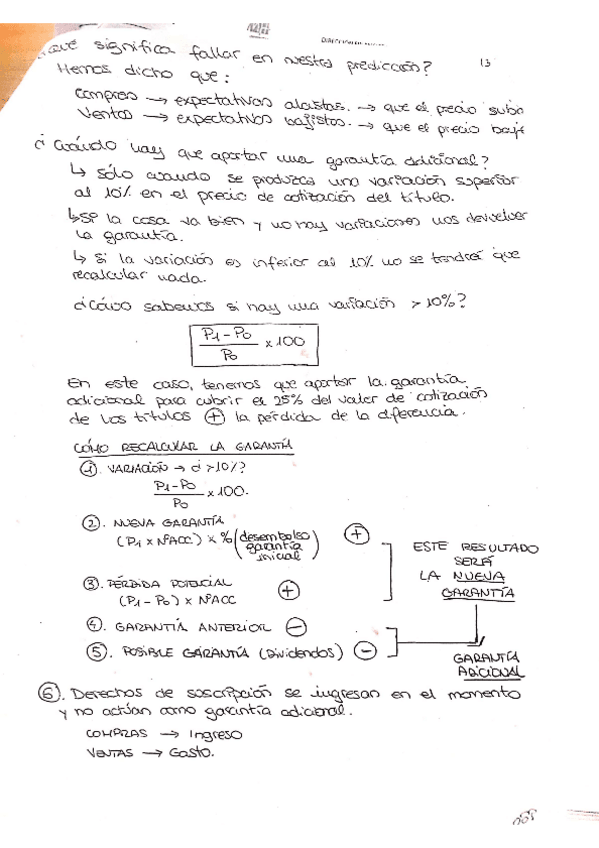 ¿Qué significa fallar en nuestra predicción?
13
Hemos dicho que:
Compras → expectativas alcistas. → que el precio suba
Ventas → expectativas bajistas. → que el precio baje
¿Cuándo hay que aportar una garantía adicional?
↳ Sólo cuando se produzca una variación superior
al 10% en el precio de cotización del título.
↳ Si la cosa va bien y no hay variaciones nos devuelven
la garantía.
↳ Si la variación es inferior al 10% no se tendrá que
recalcular nada.
¿Cómo sabemos si hay una variación > 10%?
P1 - P0
x 100
P0
En este caso, tenemos que aportar la garantía
adicional para cubrir el 25% del valor de cotización
de los títulos ⊕ la pérdida de la diferencia.
CÓMO RECALCULAR LA GARANTÍA
①. VARIACIÓN → ¿>10%?
P1 - P0
x 100.
P0
②. NUEVA GARANTÍA
(P1 x NºACC) x % (desembolso garantía inicial) ⊕
③. PÉRDIDA POTENCIAL
(P1 - P0) x NºACC ⊕
ESTE RESULTADO
SERÁ
LA NUEVA
GARANTÍA
④. GARANTÍA ANTERIOR ⊖
⑤. POSIBLE GARANTÍA (Dividendos) ⊖
GARANTÍA
ADICIONAL
⑥. Derechos de suscripción se ingresan en el momento
y no actúan como garantía adicional.
COMPRAS → Ingreso
VENTAS → Gasto.